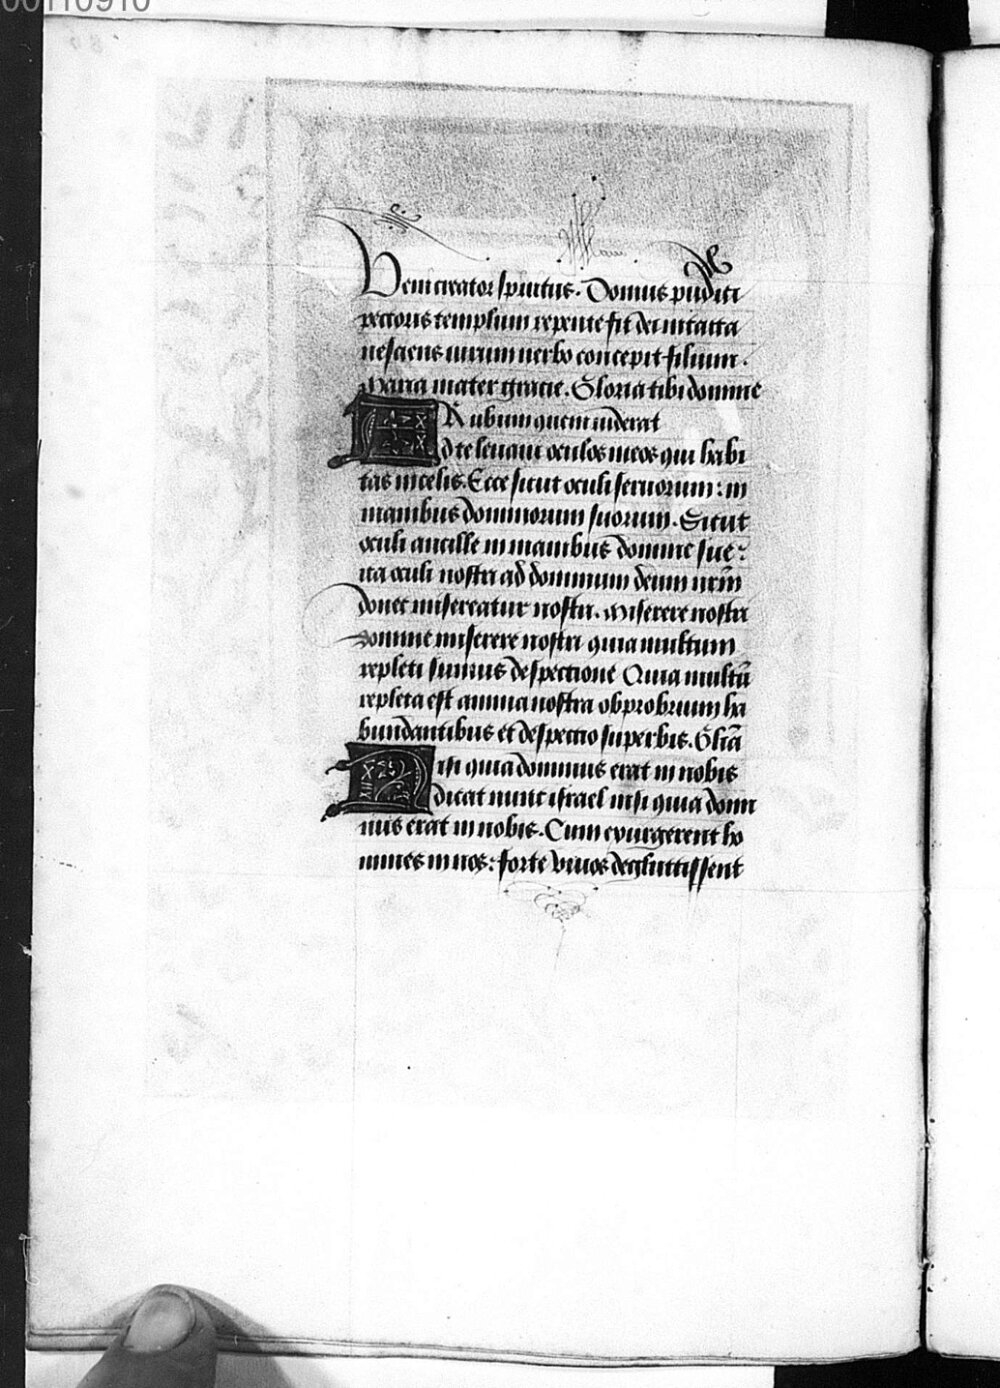 00110910
Veni creator spiritus. Domus pudici
pectoris templum repente fit dei intacta
nesciens virum verbo concepit filium.
Maria mater gracie. Gloria tibi domine
A Rubum quem viderat
Ad te levavi oculos meos qui habi
tas in celis. Ecce sicut oculi servorum: in
manibus dominorum suorum. Sicut
oculi ancille in manibus domine sue:
ita oculi nostri ad dominum deum nr̄m
donec misereatur nostri. Miserere nostri
domine miserere nostri quia multum
repleti sumus despectione Quia multū
repleta est anima nostra obprobrium ha
bundantibus et despectio superbis. Gl̄ia
Nisi quia dominus erat in nobis
dicat nunc israel nisi quia domi
nus erat in nobis. Cum exurgerent ho
mines in nos: forte vivos deglutissent